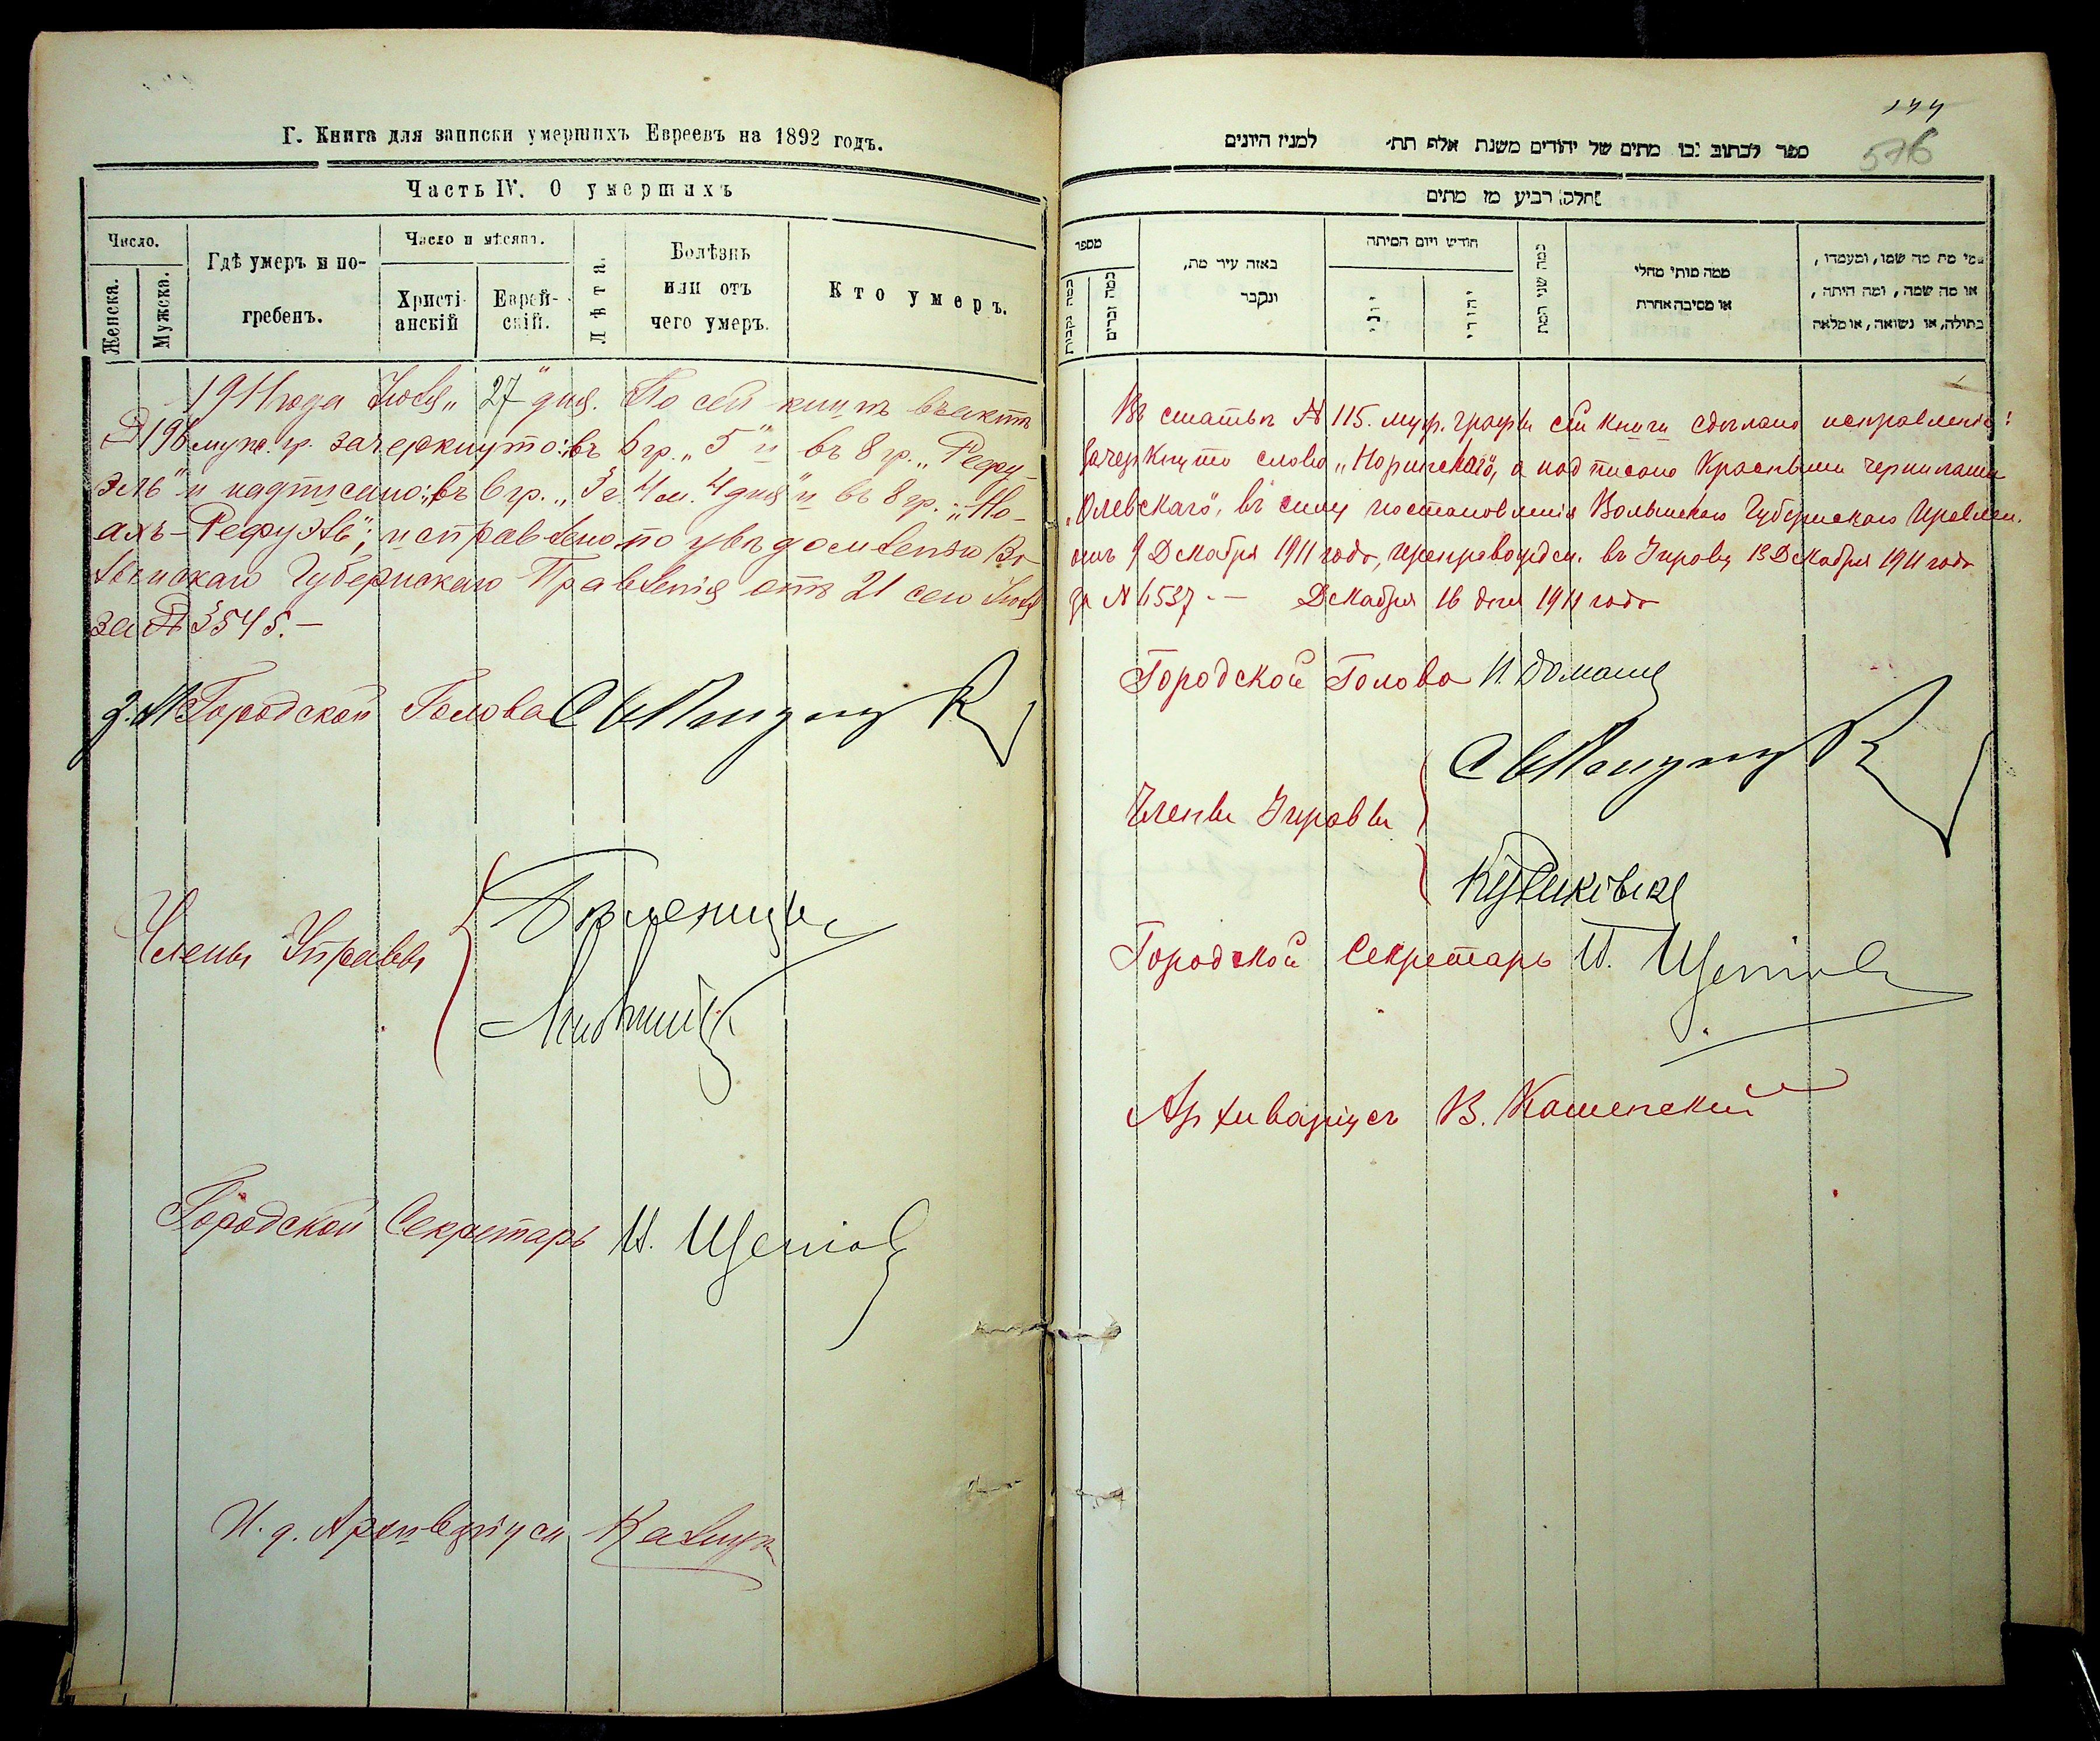 Г. Книга для записки умершихъ Евреевъ на 1892 годъ.
Часть IV. О умершихъ
Число.
Женска.
Мужска.
Гдѣ умеръ и по-
гребенъ.
Число и мѣсяцъ.
Христі-
анскій
Еврей-
скій.
Лѣта.
Болѣзнь
или отъ
чего умеръ.
Кто умеръ.
1911 года Іюля „27" дня. По сей книгѣ въ актѣ
№ 196 мужс. гр. зачеркнуто: въ 6 гр. „5" и въ 8 гр. „Рефу-
эль" и надписано: въ 6 гр. „3 г. 4 м. 4 дня" и въ 8 гр. „Но-
ахъ-Рефуэль"; исправлено по увѣдомленію Во-
лынскаго Губернскаго Правленія отъ 21 сего Іюля
за № 3545.—
Городской Голова
Члены Управы
Городской Секретарь И.
И. д. Архиваріуса
144
576
ספר לכתוב בו מתים של יהודים משנת אלף תת׳ למנין היונים
חלק רביע מן מתים
מספר
כמה נקבות
כמה זכרים
באזה עיר מת,
ונקבר
חודש ויום המיתה
יוני
יהודי
כמה שני המת
ממה מותי מחלי
או מסיבה אחרת
מי מת מה שמו, ומעמדו,
או מה שמה, ומה היתה,
בתולה, או נשואה, או מלאה
Въ статьѣ № 115. муж. графы сей книги сдѣлано исправленіе:
Зачеркнуто слово „Норинскаго", а надписано красными чернилами
„Олевскаго", въ силу постановленія Волынскаго Губернскаго Правлен.
отъ 9 Декабря 1911 года, препровожден. въ Управу 13 Декабря 1911 года
за № 6537.— Декабря 16 дня 1911 года
Городской Голова И.
Члены Управы
Городской Секретарь И.
Архиваріусъ В. Каменский